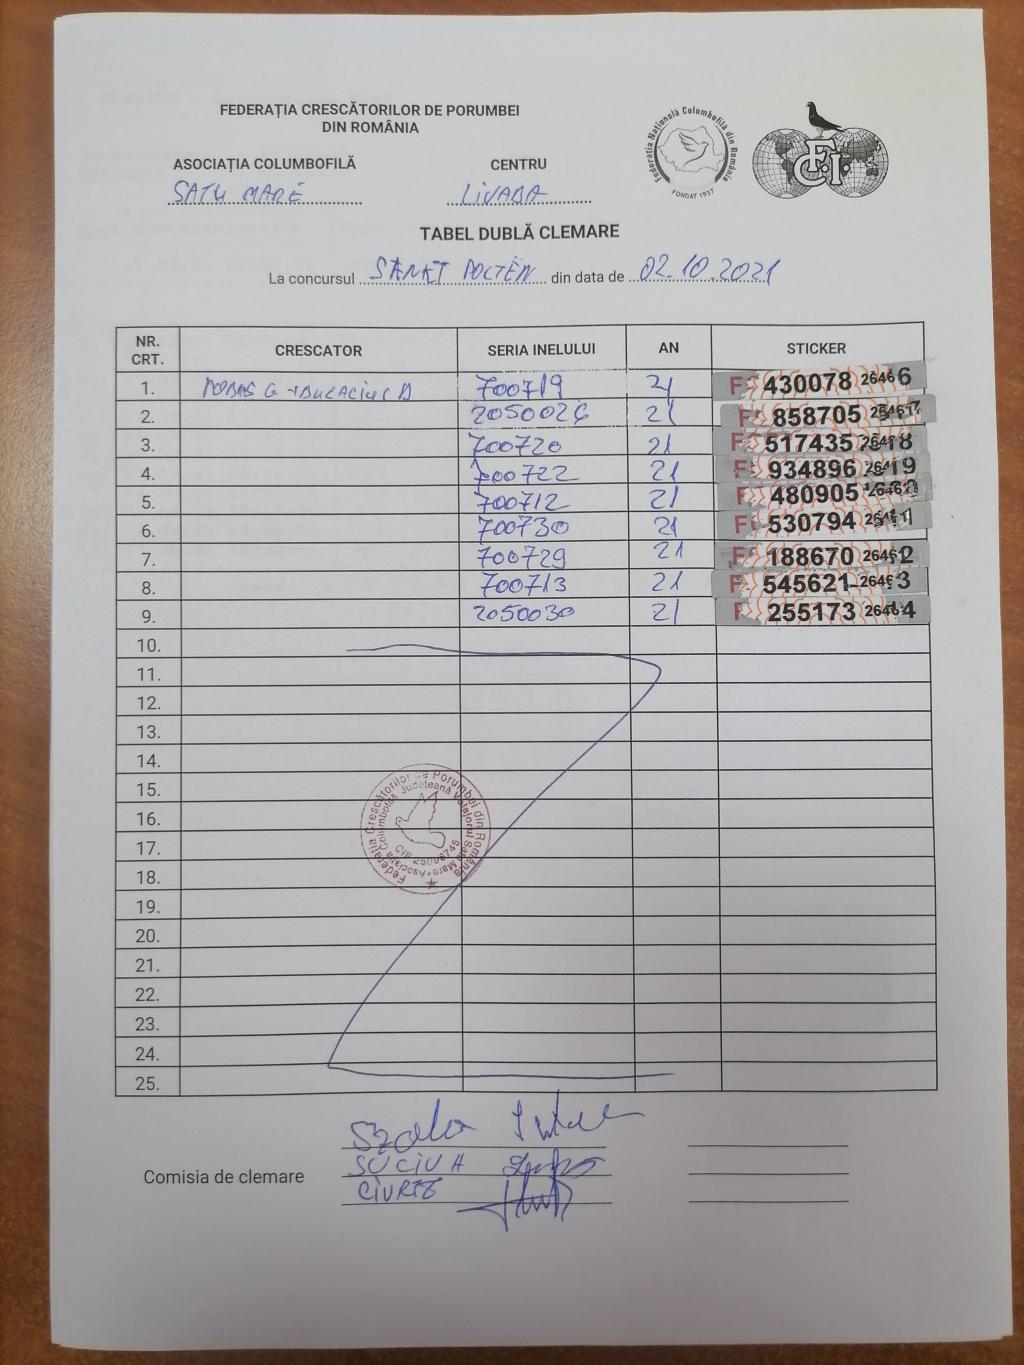 FEDERAȚIA CRESCĂTORILOR DE PORUMBEI
DIN ROMÂNIA
Federația Națională Columbofilă din România
FONDAT 1937
F.C.I.
ASOCIAȚIA COLUMBOFILĂ CENTRU
SATU MARE LIVADA
TABEL DUBLĂ CLEMARE
La concursul SANKT POLTEN din data de 02.10.2021
NR. CRT. CRESCATOR SERIA INELULUI AN STICKER
1. 700719 21 F 430078 26466
2. 2050026 21 F 858705
3. 700720 21 F 517435
4. 700722 21 F 934896
5. 700712 21 F 480905
6. 700730 21 F 530794
7. 700729 21 F 188670
8. 700713 21 F 545621
9. 2050030 21 F 255173
10.
11.
12.
13.
14.
15.
16.
17.
18.
19.
20.
21.
22.
23.
24.
25.
Federația Crescătorilor de Porumbei din România
Asociația Columbofilă Județeană Voiajorul Satu Mare
CIF 25098745
Comisia de clemare
SUCIU A